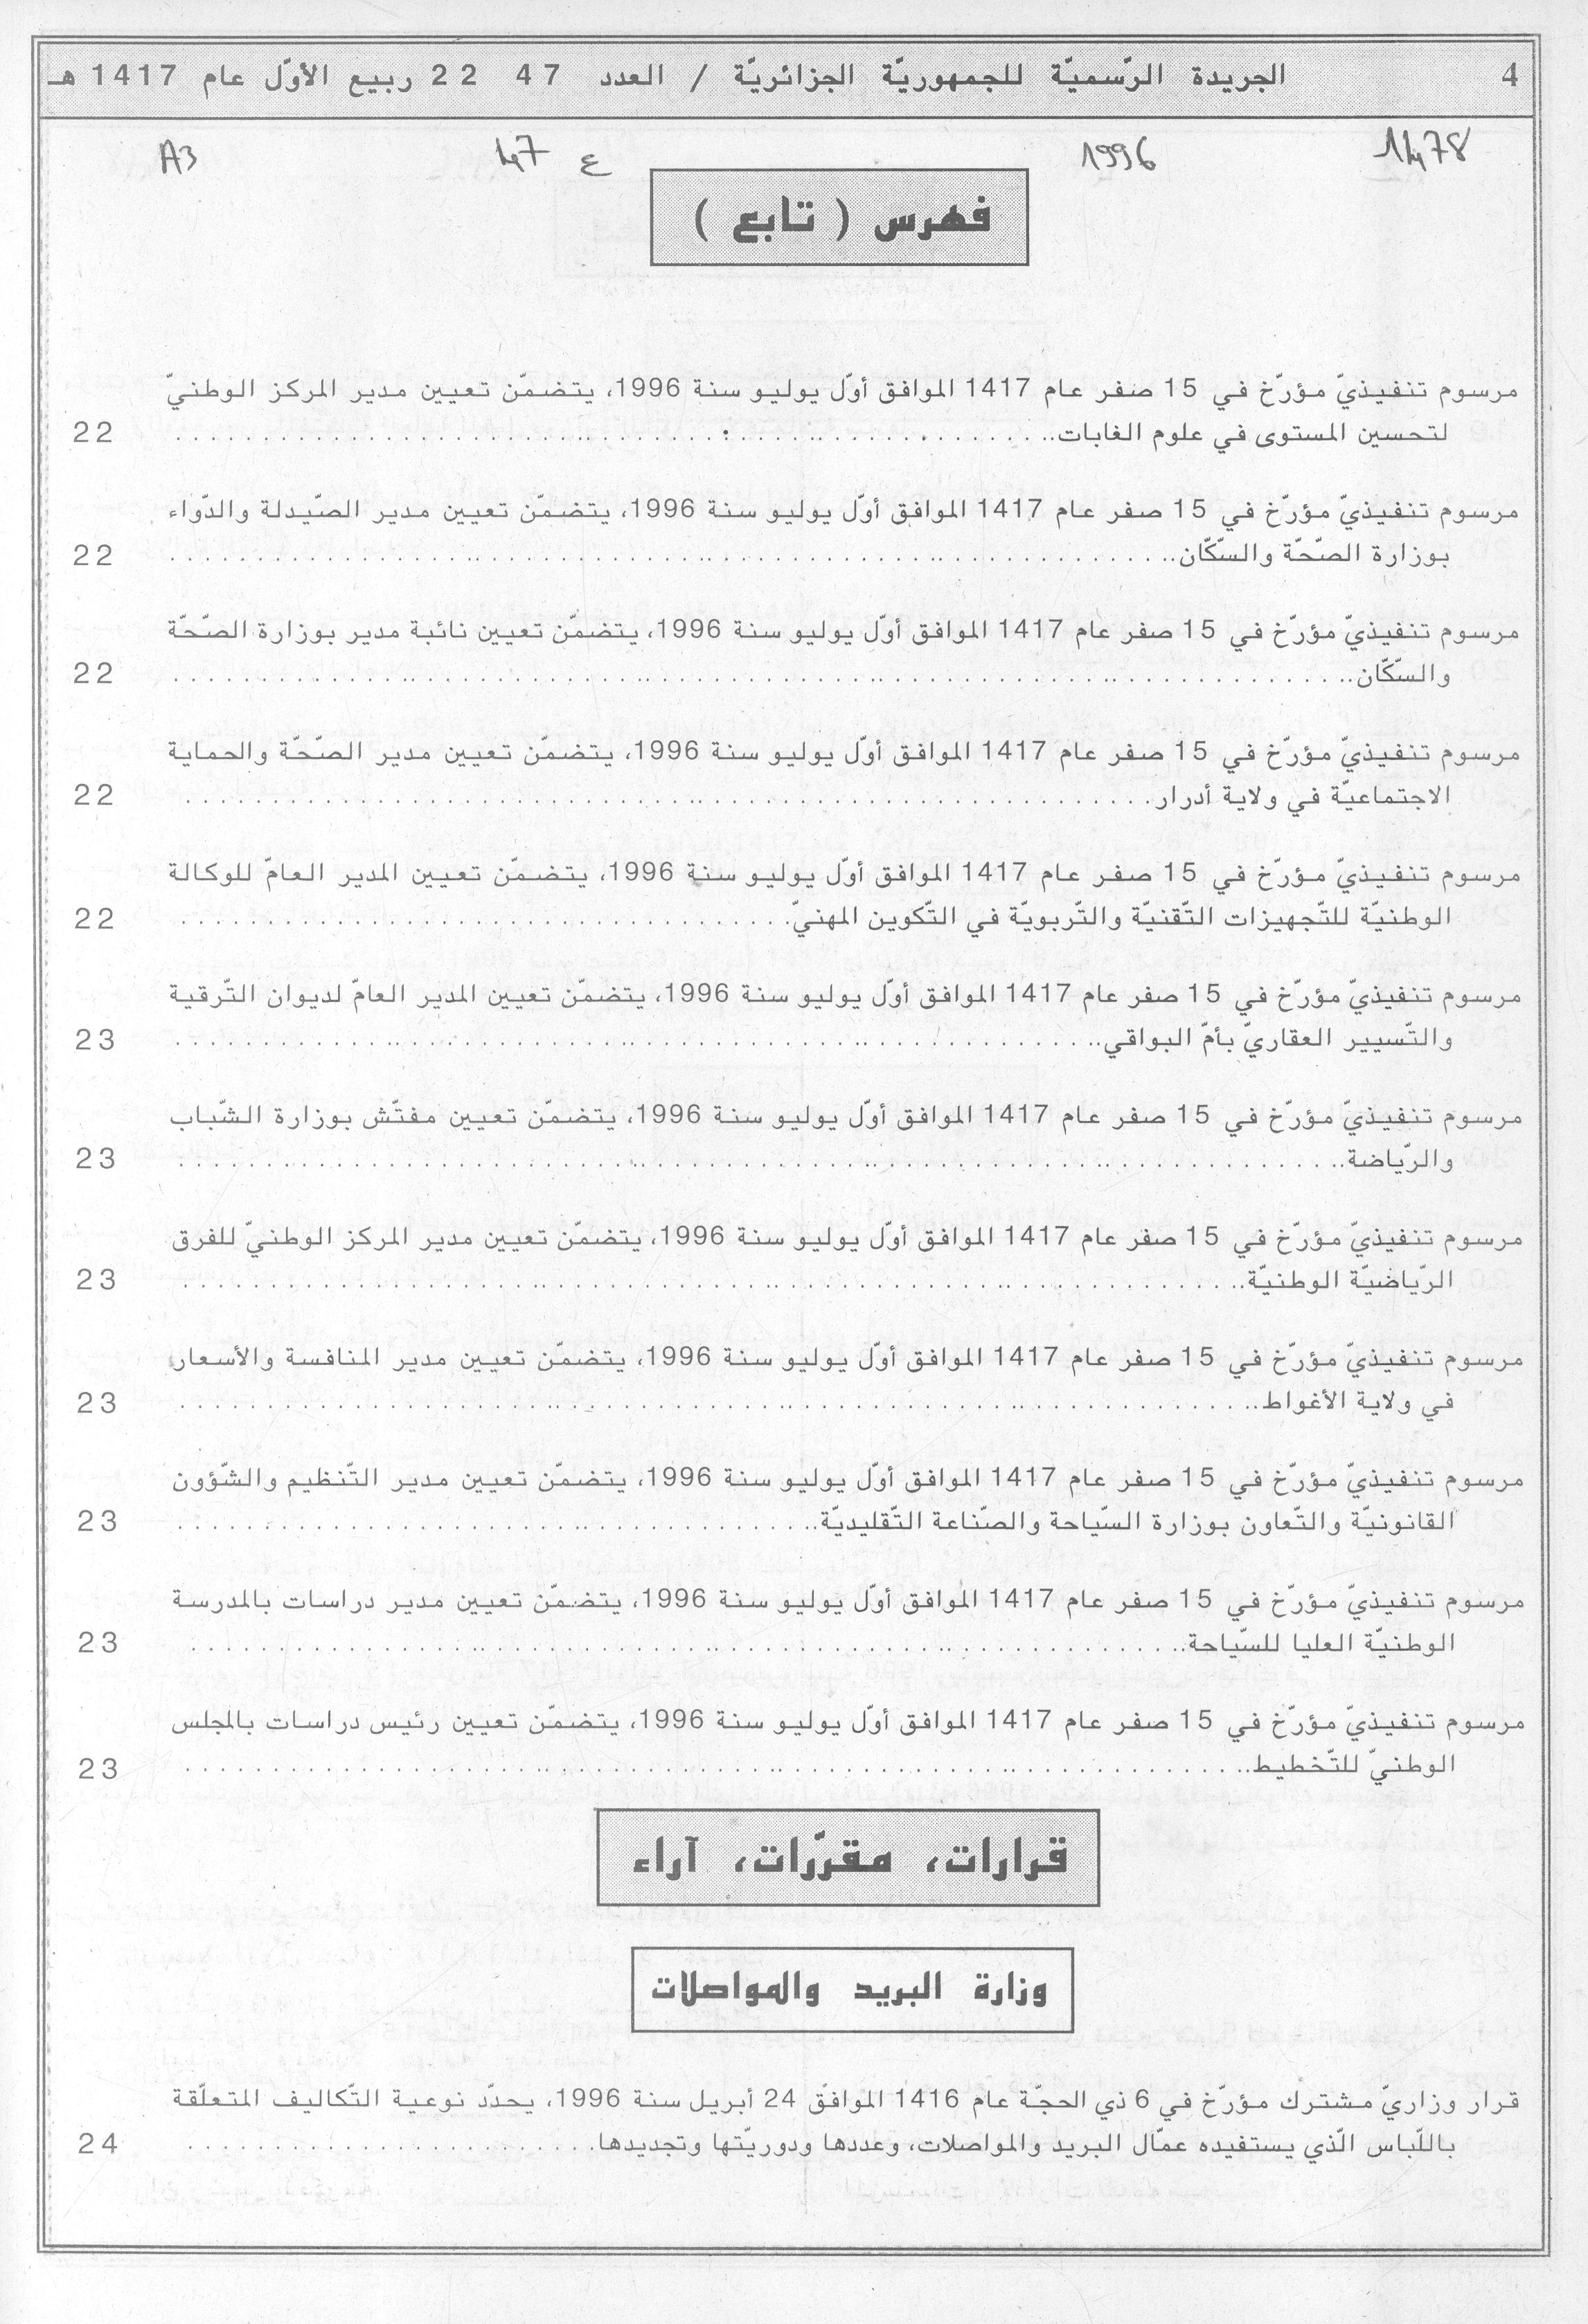 4 الجريدة الرّسميّة للجمهوريّة الجزائريّة / العدد 47 22 ربيع الأوّل عام 1417 هـ
1478 1996 ع 47 A3
فهرس ( تابع )
مرسوم تنفيذيّ مؤرّخ في 15 صفر عام 1417 الموافق أوّل يوليو سنة 1996، يتضمّن تعيين مدير المركز الوطنيّ
لتحسين المستوى في علوم الغابات.. 22
مرسوم تنفيذيّ مؤرّخ في 15 صفر عام 1417 الموافق أوّل يوليو سنة 1996، يتضمّن تعيين مدير الصّيدلة والدّواء
بوزارة الصّحّة والسّكّان.. 22
مرسوم تنفيذيّ مؤرّخ في 15 صفر عام 1417 الموافق أوّل يوليو سنة 1996، يتضمّن تعيين نائبة مدير بوزارة الصّحّة
والسّكّان.. 22
مرسوم تنفيذيّ مؤرّخ في 15 صفر عام 1417 الموافق أوّل يوليو سنة 1996، يتضمّن تعيين مدير الصّحّة والحماية
الاجتماعيّة في ولاية أدرار. 22
مرسوم تنفيذيّ مؤرّخ في 15 صفر عام 1417 الموافق أوّل يوليو سنة 1996، يتضمّن تعيين المدير العامّ للوكالة
الوطنيّة للتّجهيزات التّقنيّة والتّربويّة في التّكوين المهنيّ. 22
مرسوم تنفيذيّ مؤرّخ في 15 صفر عام 1417 الموافق أوّل يوليو سنة 1996، يتضمّن تعيين المدير العامّ لديوان التّرقية
والتّسيير العقاريّ بأمّ البواقي.. 23
مرسوم تنفيذيّ مؤرّخ في 15 صفر عام 1417 الموافق أوّل يوليو سنة 1996، يتضمّن تعيين مفتّش بوزارة الشّباب
والرّياضة.. 23
مرسوم تنفيذيّ مؤرّخ في 15 صفر عام 1417 الموافق أوّل يوليو سنة 1996، يتضمّن تعيين مدير المركز الوطنيّ للفرق
الرّياضيّة الوطنيّة.. 23
مرسوم تنفيذيّ مؤرّخ في 15 صفر عام 1417 الموافق أوّل يوليو سنة 1996، يتضمّن تعيين مدير المنافسة والأسعار
في ولاية الأغواط.. 23
مرسوم تنفيذيّ مؤرّخ في 15 صفر عام 1417 الموافق أوّل يوليو سنة 1996، يتضمّن تعيين مدير التّنظيم والشّؤون
القانونيّة والتّعاون بوزارة السّياحة والصّناعة التّقليديّة.. 23
مرسوم تنفيذيّ مؤرّخ في 15 صفر عام 1417 الموافق أوّل يوليو سنة 1996، يتضمّن تعيين مدير دراسات بالمدرسة
الوطنيّة العليا للسّياحة.. 23
مرسوم تنفيذيّ مؤرّخ في 15 صفر عام 1417 الموافق أوّل يوليو سنة 1996، يتضمّن تعيين رئيس دراسات بالمجلس
الوطنيّ للتّخطيط.. 23
قرارات، مقرّرات، آراء
وزارة البريد والمواصلات
قرار وزاريّ مشترك مؤرّخ في 6 ذي الحجّة عام 1416 الموافق 24 أبريل سنة 1996، يحدّد نوعية التّكاليف المتعلّقة
باللّباس الّذي يستفيده عمّال البريد والمواصلات، وعددها ودوريّتها وتجديدها. 24